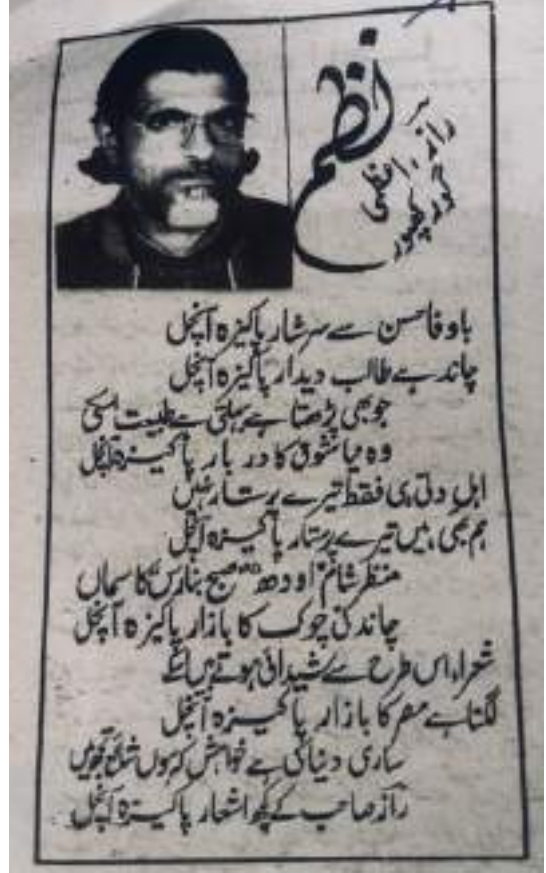 نظم
راز اعظمی
گورکھپور
باوفا حسن سے سرشار پاکیزہ آنچل
چاند ہے طالب دیدار پاکیزہ آنچل
جو بھی پڑھتا ہے بہلتی ہے طبیعت اسکی
وہ میا شوق کا دربار پاکیزہ آنچل
اہل دلّی ہی فقط تیرے پرستار نہیں
ہم بھی ہیں تیرے پرستار پاکیزہ آنچل
منظر شام اودھ صبح بنارس کا سماں
چاندنی چوک کا بازار پاکیزہ آنچل
شعراء اس طرح سے شیدائی ہوتے ہیں
لگتا ہے مصر کا بازار پاکیزہ آنچل
ساری دنیا کی ہے خواہش کہ ہوں شائع تجھ میں
راز صاحب کے کچھ اشعار پاکیزہ آنچل